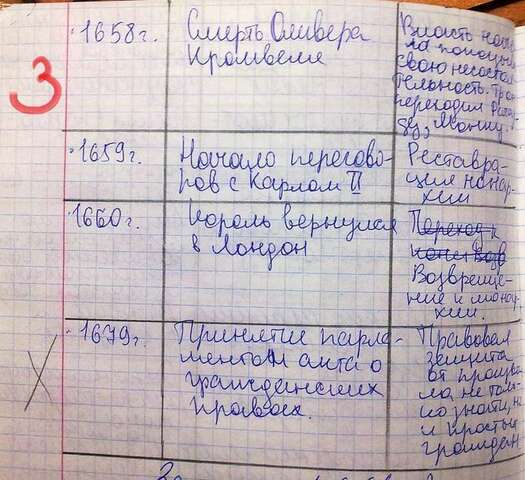 3
1658г.
Смерть Оливера
Кромвеля
Власть нача-
ла показыв
свою несостоя
тельность. Трон
переходил Ричар
ду, Монку.
1659г.
Начало перегово-
ров с Карлом II
Реставра-
ция монар-
хии
1660г.
Король вернулся
в Лондон
Переход к
Возвраще-
ние к монар-
хии.
1679г.
Принятие парла-
ментом акта о
гражданских
правах.
Правовая
защита
от произво
ла, не толь-
ко знати, но
и простых
граждан